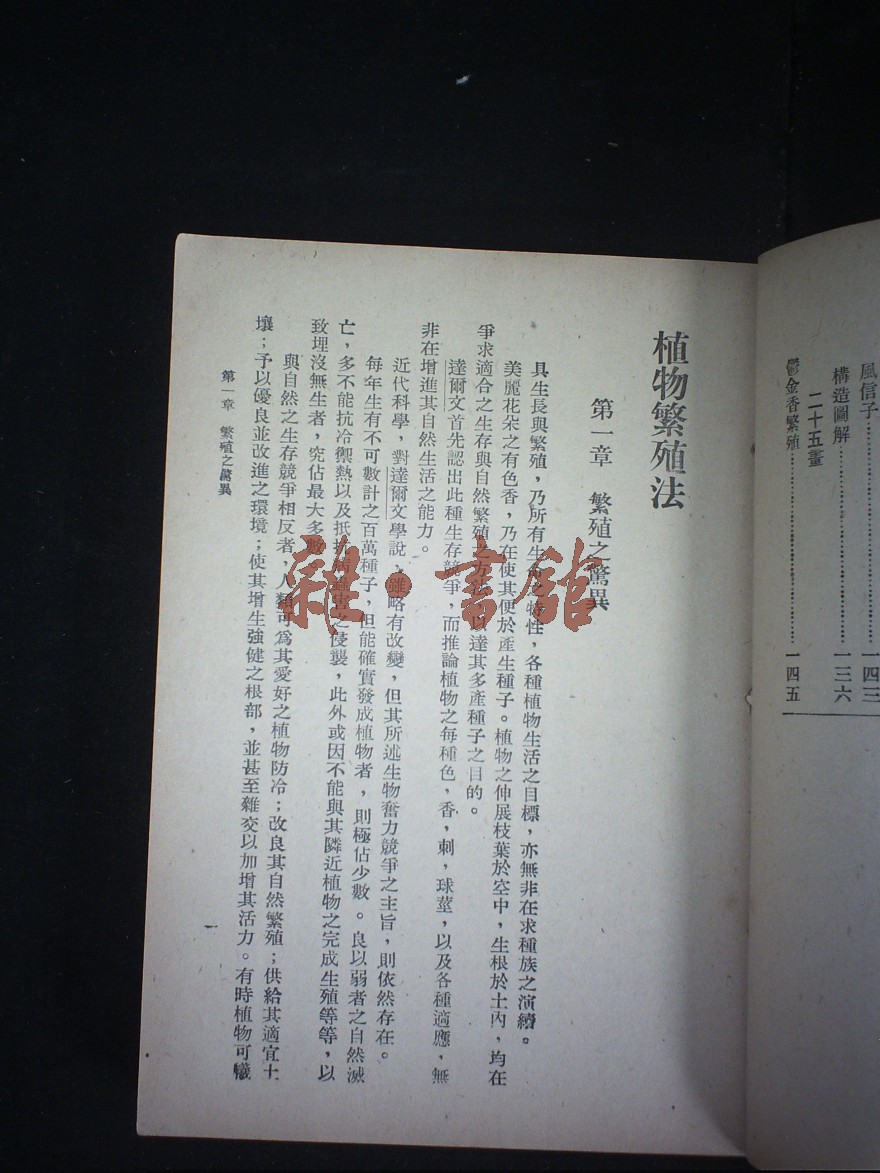 風信子……………………一四三
構造圖解…………………一三六
二十五畫
鬱金香繁殖………………一四五
植物繁殖法
第一章　繁殖之驚異
具生長與繁殖，乃所有生命之特性，各種植物生活之目標，亦無非在求種族之演續。
美麗花朵之有色香，乃在使其便於產生種子。植物之伸展枝葉於空中，生根於土內，均在
爭求適合之生存與自然繁殖之方法，以達其多產種子之目的。
達爾文首先認出此種生存競爭，而推論植物之每種色，香，刺，球莖，以及各種適應，無
非在增進其自然生活之能力。
近代科學，對達爾文學說，雖略有改變，但其所述生物奮力競爭之主旨，則依然存在。
每年生有不可數計之百萬種子，但能確實發成植物者，則極佔少數。良以弱者之自然滅
亡，多不能抗冷禦熱以及抵抗病蟲害之侵襲，此外或因不能與其隣近植物之完成生殖等等，以
致埋沒無生者，究佔最大多數。
與自然之生存競爭相反者，人類可為其愛好之植物防冷；改良其自然繁殖；供給其適宜土
壤；予以優良並改進之環境；使其增生強健之根部，並甚至雜交以加增其活力。有時植物可犧
第一章　繁殖之驚異
雜·書館